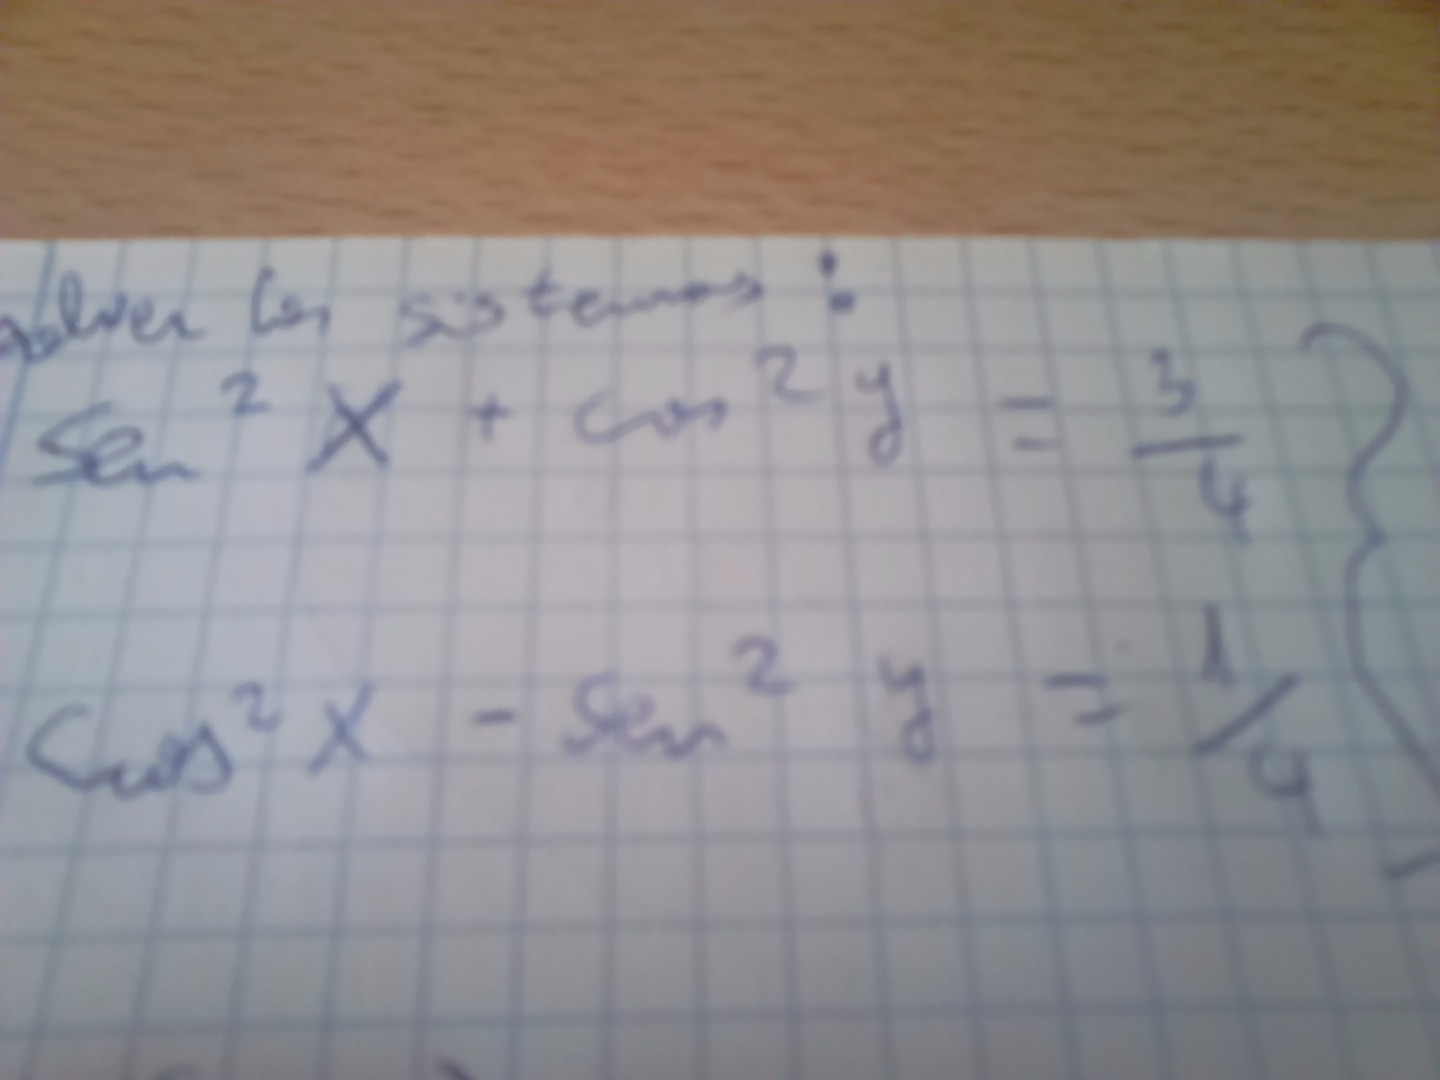 solver los sistemas:
Sen² X + cos² y = 3/4
Cos² X - Sen² y = 1/4